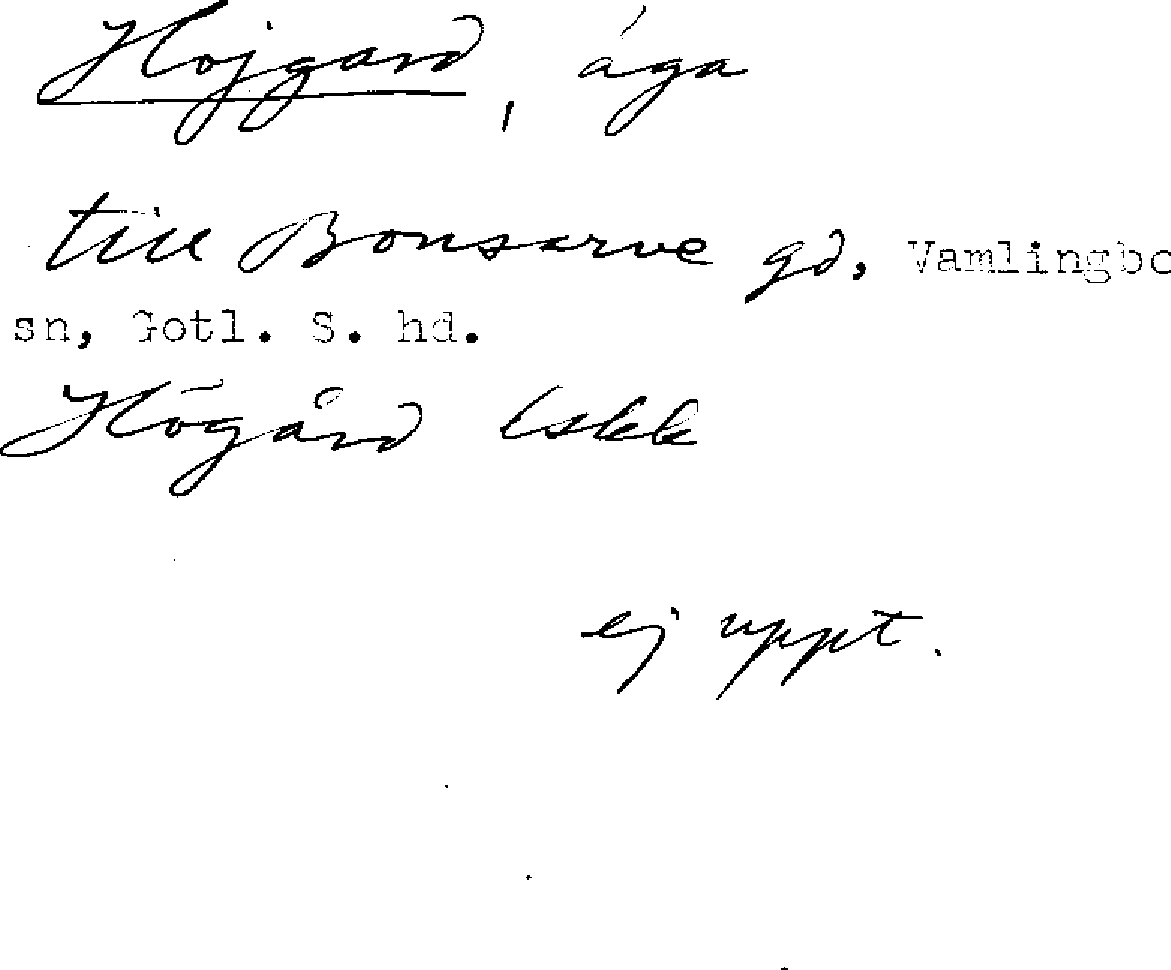 Hojgard, ága
till Bonsarve gd, Vamlingbo
sn, Gotl. S. hd.
Högård Iskk
ej uppt.